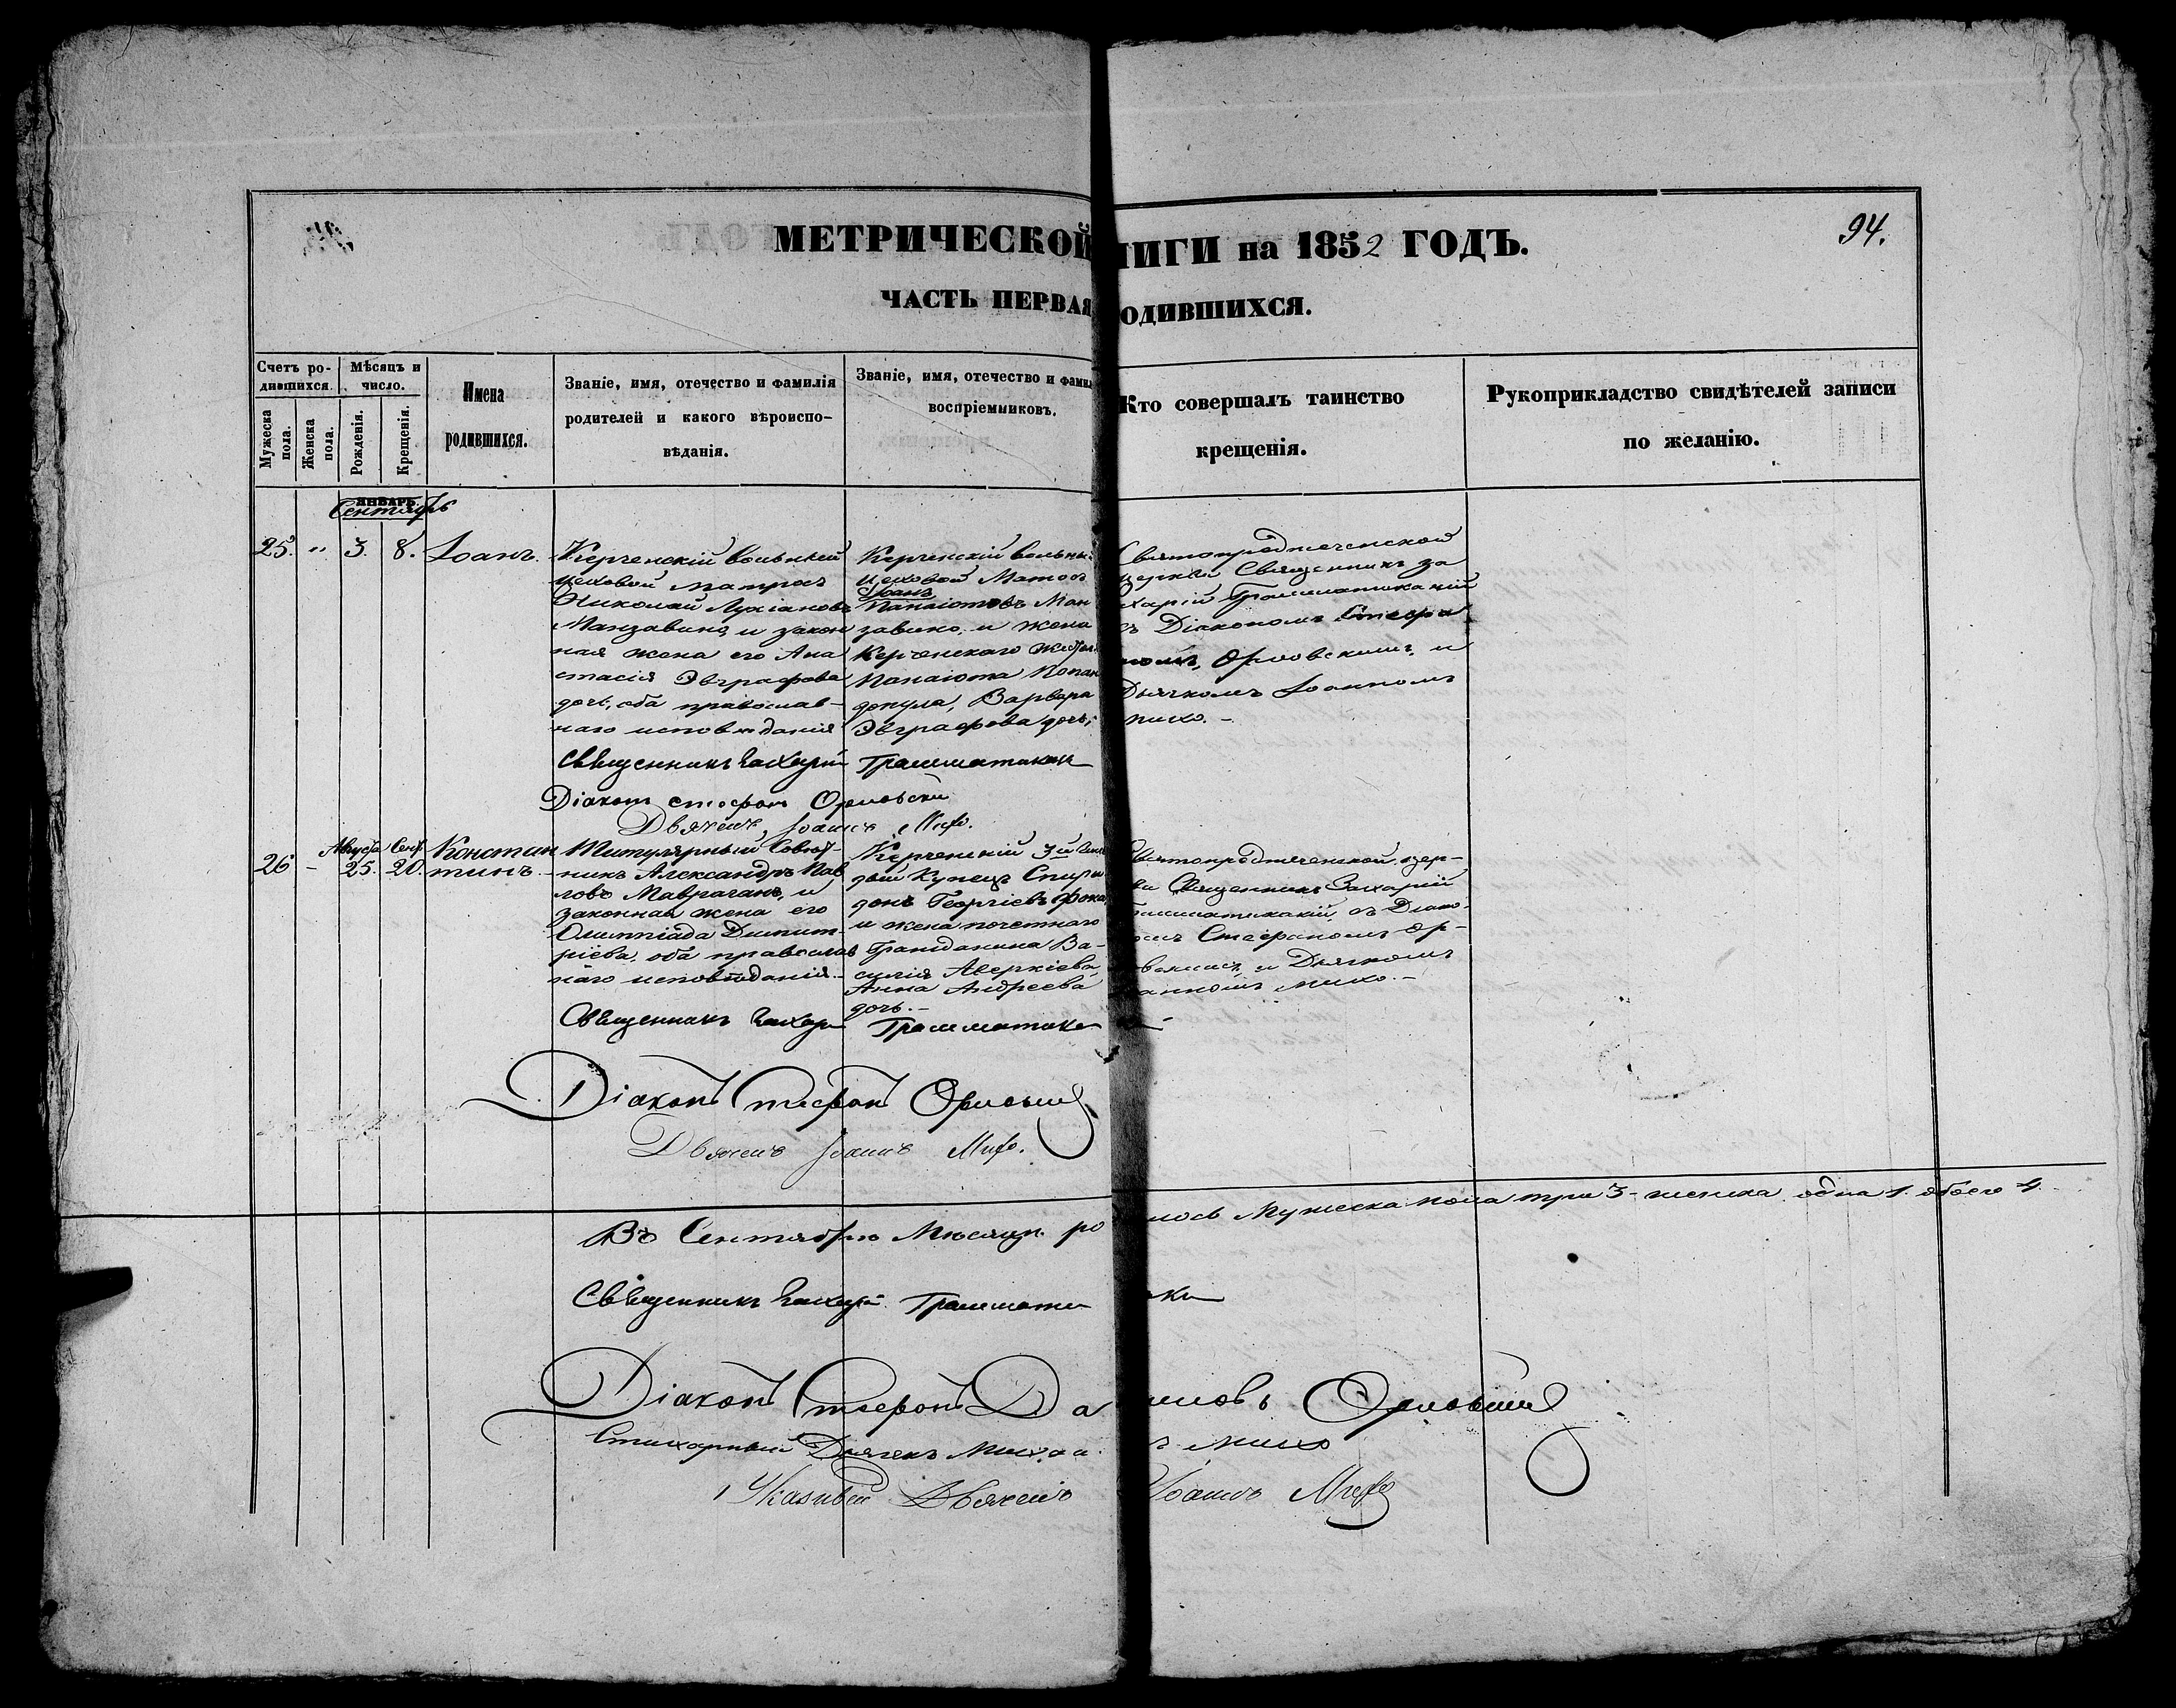 МЕТРИЧЕСКОЙ НИГИ на 1852 ГОДЪ.
94.
ЧАСТЬ ПЕРВАЯ ОДИВШИХСЯ.
Счетъ ро-
дившихся.
Мужеска пола.
Женска пола.
Мѣсяцъ и
число.
Рожденія.
Крещенія.
Имена
родившихся.
Званіе, имя, отечество и фамилія
родителей и какого вѣроиспо-
вѣданія.
Званіе, имя, отечество и фами
воспріемниковъ.
Кто совершалъ таинство
крещенія.
Рукоприкладство свидѣтелей записи
по желанію.
ЯНВАРЬ.
Сентябрь
25. „ 3. 8. Іоанъ.
Керченскій вольный
цеховой матросъ
Николай Лукіановъ
Манзавино, и закон
ная жена его Ана
стасія Эвграфова
дочь, оба православ-
наго исповѣданія
Керченскій вольны
цеховой Матро
Іоанъ
Панаіотовъ Ман
завино, и жена
Керченскаго
Панаіота Попан
допула, Варвара
Эвграфова дочь,
Святопредтеченской
церкви Священникъ За
харій Грамматикакій
съ Діакономъ Стефа
номъ, Орловскимъ, и
Дьячкомъ Іоанномъ
михо.-
Священникъ Захарій Грамматикаки
Діаконъ Стефанъ Орловски
Дьячекъ Іоаннъ Михо.
26 - Августа 25. Сент. 20. Констан
тинъ.-
Титулярный Совѣт-
никъ Александръ Пав
ловъ Маврагани, и
законная жена его
Олимпіада Димит-
ріева, оба православ
наго исповѣданія.-
Керченскій 3й Гиль
дьи Купецъ Спири
донъ Георгіевъ Фока
и жена почетнаго
Гражданина Ва-
силія Аверкіева
Анна Андреева
дочь.-
Святопредтеченской цер-
кви Священникъ Захарій
Грамматикакій, съ Діако-
номъ Стефаномъ Ор-
ловскимъ, и Дьячкомъ
анномъ михо.-
Священникъ Захарі Грамматикаки
Діаконъ Стефанъ Орловски
Дьячекъ Іоаннъ Михо.
Въ Сентябрѣ Мѣсяцѣ ро лось Мужеска пола три 3- женска одна 1. обоего 4.
Священникъ Захарій Граммати каки
Діаконъ Стефанъ Да иловъ Орловски
Стихарный Дьячекъ Михаи ъ михо
Указный Дьячекъ Іоаннъ Михо